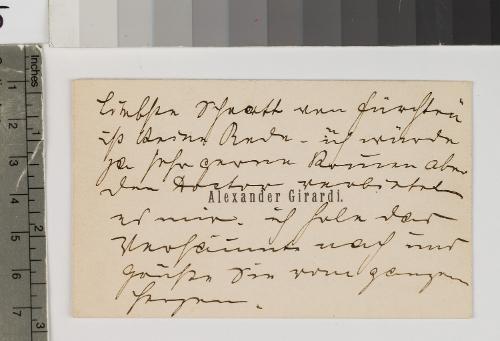 liebste Schratt von fürchten
ist keine Rede - ich würde
ja sehr gerne kommen aber
der Doctor verbietet
Alexander Girardi.
es mir. ich hole das
Versäumte nach und
grüße Sie vom ganzen
Herzen.
Inches
1
2
3
4
5
6
7
1
2
3